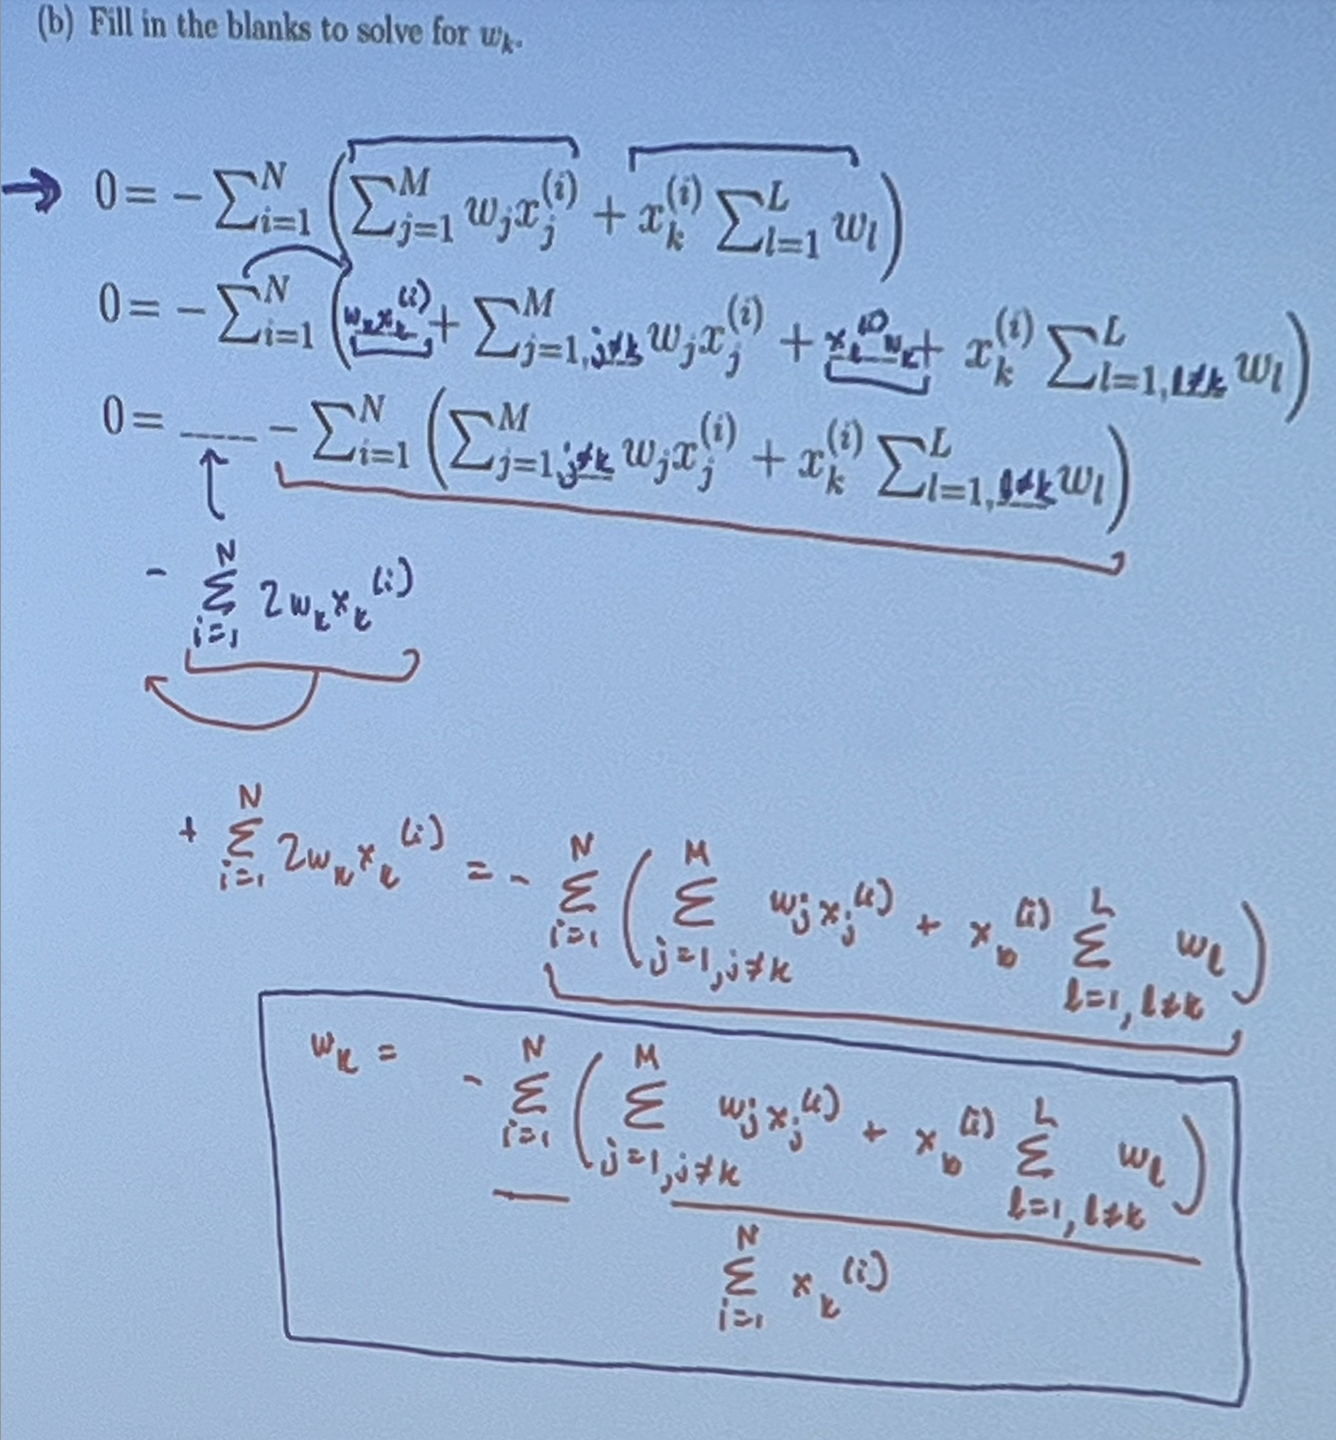 (b) Fill in the blanks to solve for w_k.
→ 0 = - ∑_{i=1}^N ( ∑_{j=1}^M w_j x_j^{(i)} + x_k^{(i)} ∑_{l=1}^L w_l )
0 = - ∑_{i=1}^N ( w_k x_k^{(i)} + ∑_{j=1, j≠k}^M w_j x_j^{(i)} + x_k^{(i)} w_k + x_k^{(i)} ∑_{l=1, l≠k}^L w_l )
0 = ____ - ∑_{i=1}^N ( ∑_{j=1, j≠k}^M w_j x_j^{(i)} + x_k^{(i)} ∑_{l=1, l≠k}^L w_l )
- ∑_{i=1}^N 2 w_k x_k^{(i)}
+ ∑_{i=1}^N 2 w_k x_k^{(i)} = - ∑_{i=1}^N ( ∑_{j=1, j≠k}^M w_j x_j^{(i)} + x_k^{(i)} ∑_{l=1, l≠k}^L w_l )
w_k = - ∑_{i=1}^N ( ∑_{j=1, j≠k}^M w_j x_j^{(i)} + x_k^{(i)} ∑_{l=1, l≠k}^L w_l )
∑_{i=1}^N x_k^{(i)}